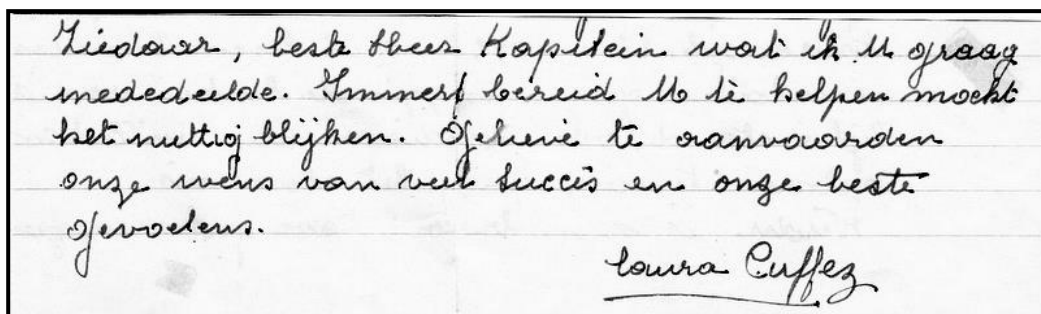 Ziedaar, beste Heer Kapitein wat ik U graag
mededeelde. Immer bereid U te helpen mocht
het nuttig blijken. Gelieve te aanvaarden
onze wens van veel succès en onze beste
gevoelens.
Laura Cuffez